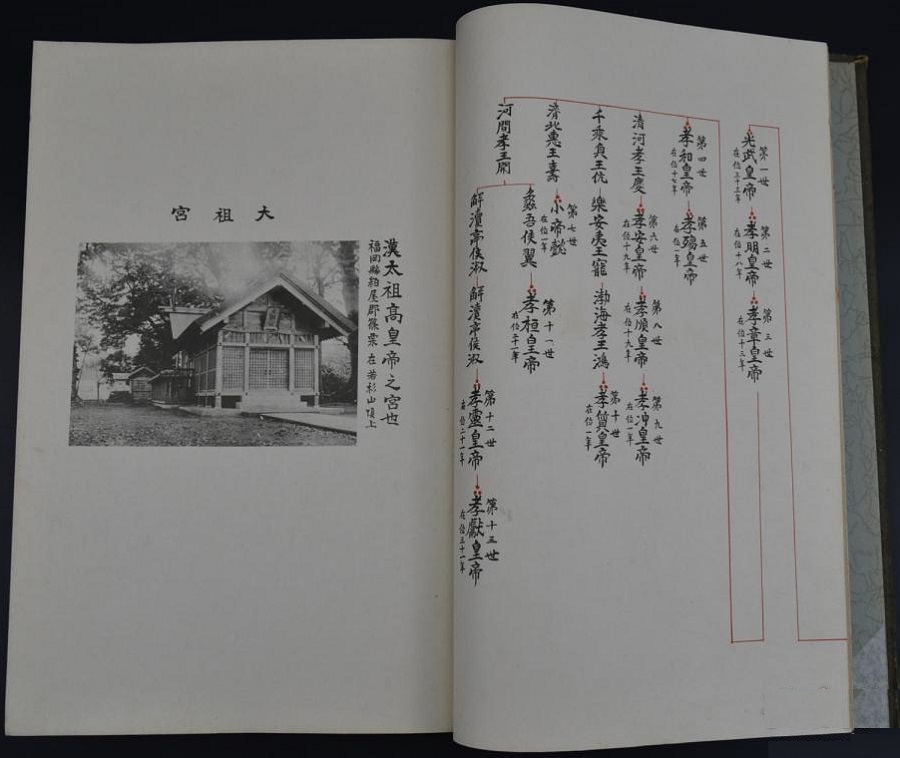 第一世
光武皇帝
在位三十三年
第二世
孝明皇帝
在位十八年
第三世
孝章皇帝
在位十三年
第四世
孝和皇帝
在位十七年
第五世
孝殤皇帝
在位一年
清河孝王慶
第六世
孝安皇帝
在位十九年
第八世
孝順皇帝
在位十九年
第九世
孝冲皇帝
在位一年
千乘貞王伉
樂安夷王寵
渤海孝王鴻
第十世
孝質皇帝
在位一年
濟北惠王壽
第七世
小帝懿
在位一年
河間孝王開
蠡吾侯翼
第十一世
孝桓皇帝
在位二十一年
解瀆亭侯淑
解瀆亭侯淑
第十二世
孝靈皇帝
在位二十一年
第十三世
孝獻皇帝
在位三十一年
大祖宮
漢太祖高皇帝之宮也
福岡縣粕屋郡篠栗在若杉山頂上